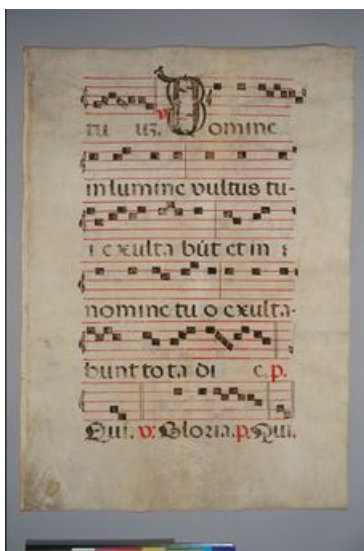 tu uȝ. ℣ Domine
in lumine vultus tu-
i exulta būt et in ⁊
nomine tu o exulta-
bunt to ta di e. p.
Qui. ℣. Gloria. p. Qui.